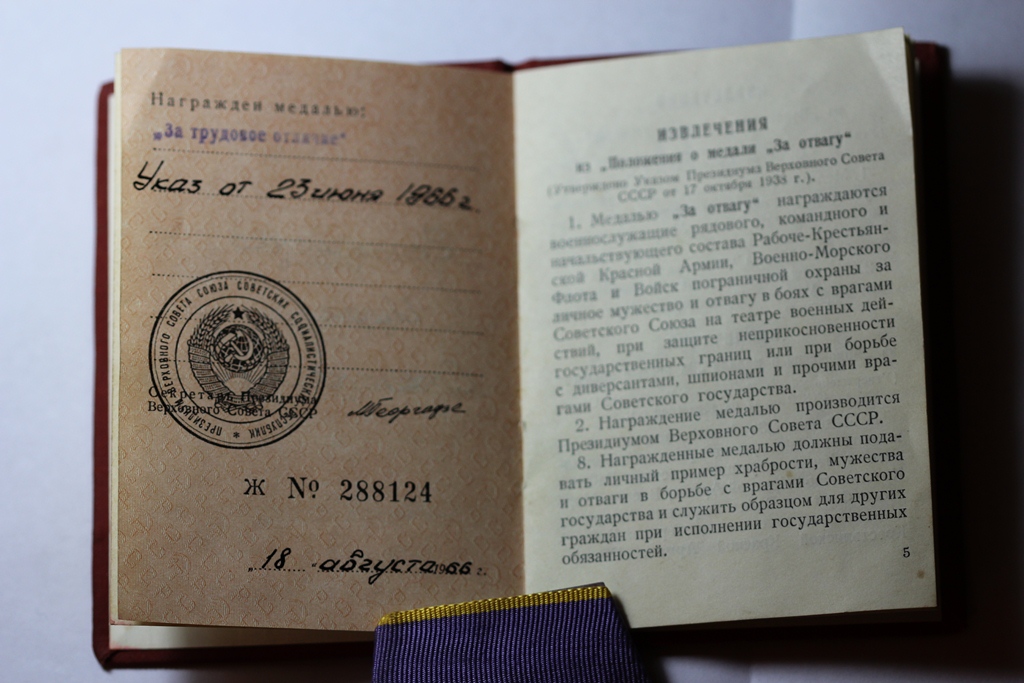 Награжден медалью:
„За трудовое отличие“
Указ от 23 июня 1966 г.
ПРЕЗИДИУМ ВЕРХОВНОГО СОВЕТА СОЮЗА СОВЕТСКИХ СОЦИАЛИСТИЧЕСКИХ РЕСПУБЛИК *
Секретарь Президиума
Верховного Совета СССР
МГеоргадзе
Ж № 288124
„18 “ августа 1966 г.
ИЗВЛЕЧЕНИЯ
из „Положения о медали „За отвагу“
(Утверждено Указом Президиума Верховного Совета
СССР от 17 октября 1938 г.).
1. Медалью „За отвагу“ награждаются
военнослужащие рядового, командного и
начальствующего состава Рабоче-Крестьян-
ской Красной Армии, Военно-Морского
Флота и Войск пограничной охраны за
личное мужество и отвагу в боях с врагами
Советского Союза на театре военных дей-
ствий, при защите неприкосновенности
государственных границ или при борьбе
с диверсантами, шпионами и прочими вра-
гами Советского государства.
2. Награждение медалью производится
Президиумом Верховного Совета СССР.
8. Награжденные медалью должны пода-
вать личный пример храбрости, мужества
и отваги в борьбе с врагами Советского
государства и служить образцом для других
граждан при исполнении государственных
обязанностей.
5